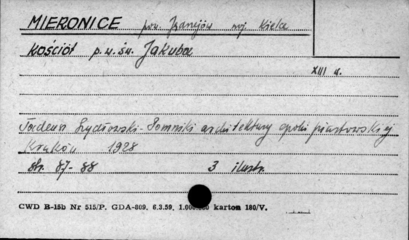 MIERONICE pow. Jędrzejów woj. Kielce
Kościół p.w.św. Jakuba
XIII w.
Tadeusz Szydłowski - Pomniki architektury epoki piastowskiej
Kraków 1928
str. 87-88 3 ilustr.
CWD B-15b Nr 515/P. GDA-809. 6.3.59. karton 180/V.